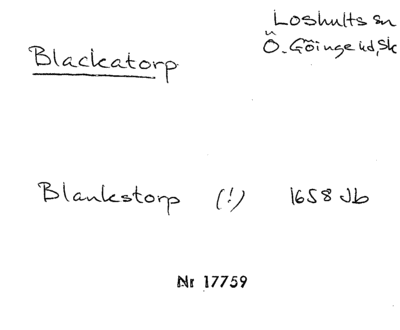 Loshults sn
Ö. Göinge hd, Sk
Blackatorp
Blankstorp (!) 1658 Jb
Nr 17759